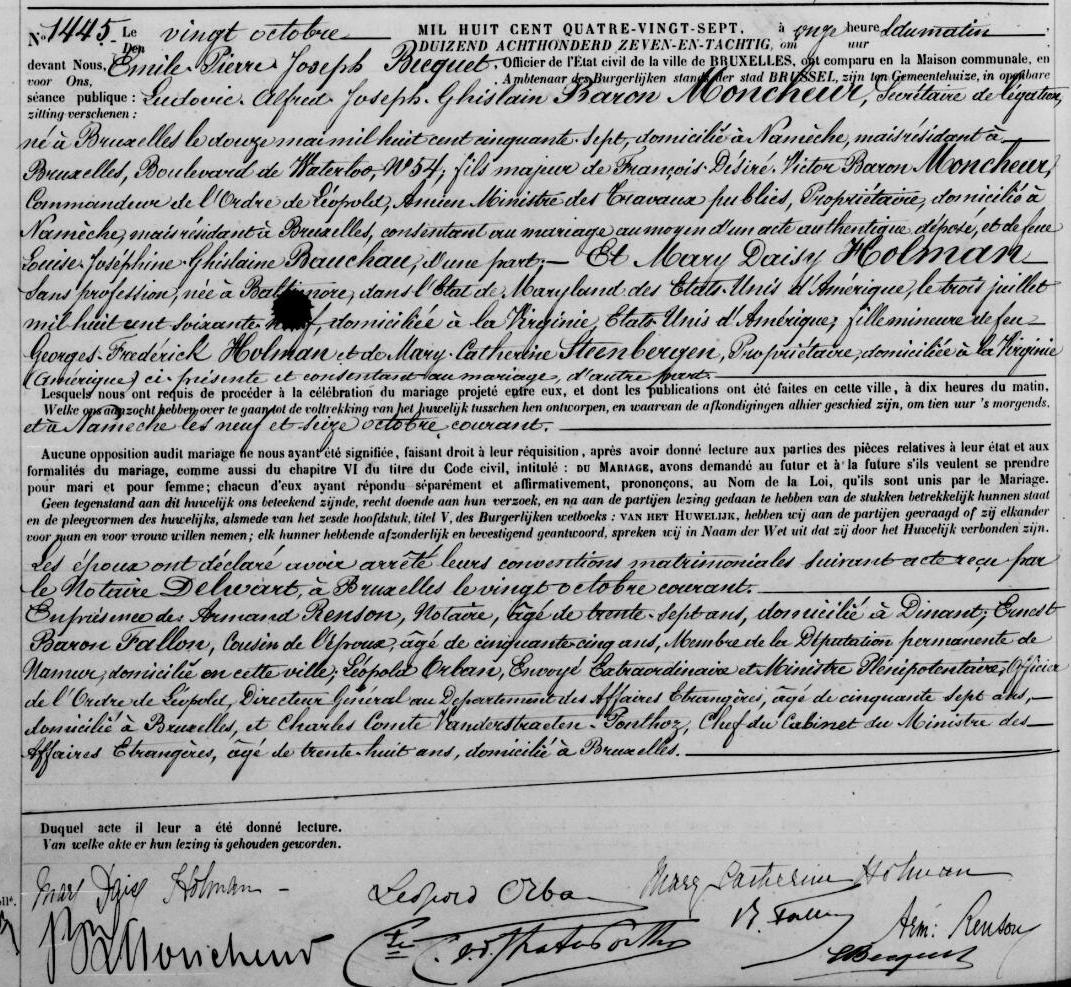 N° 1445. Le vingt octobre MIL HUIT CENT QUATRE-VINGT-SEPT. à onze heure s du matin ;
Den DUIZEND ACHTHONDERD ZEVEN-EN-TACHTIG, om uur
devant Nous, Emile Pierre Joseph Becquet Officier de l'Etat civil de la ville de BRUXELLES, ont comparu en la Maison communale, en
voor Ons, Ambtenaar des Burgerlijken stands der stad BRUSSEL, zijn ten Gemeentehuize, in openbare
séance publique : Ludovic Alfred Joseph Ghislain Baron Moncheur, Secrétaire de légation,
zitting verschenen :
né à Bruxelles le douze mai mil huit cent cinquante sept, domicilié à Namèche, mais résidant à
Bruxelles, Boulevard de Waterloo, N° 54, fils majeur de François Désiré Victor Baron Moncheur,
Commandeur de l'Ordre de Léopold, Ancien Ministre des Travaux publics, Propriétaire, domicilié à
Namèche, mais résidant à Bruxelles, consentant au mariage au moyen d'un acte authentique déposé, et de feue
Louise Joséphine Ghislaine Bauchau, d'une part ; — Et Mary Daisy Holman
sans profession, née à Baltimore, dans l'Etat de Maryland des Etats-Unis d'Amérique, le trois juillet
mil huit cent soixante neuf, domiciliée à la Virginie, Etats Unis d'Amérique, fille mineure de feu
Georges Frédérick Holman et de Mary Catherine Steenbergen, Propriétaire, domiciliée à la Virginie
(Amérique) ci présente et consentant au mariage, d'autre part.
Lesquels nous ont requis de procéder à la célébration du mariage projeté entre eux, et dont les publications ont été faites en cette ville, à dix heures du matin,
Welke ons aanzocht hebben over te gaan tot de voltrekking van het huwelijk tusschen hen ontworpen, en waarvan de afkondigingen alhier geschied zijn, om tien uur 's morgends,
et à Namèche les neuf et seize octobre courant.
Aucune opposition audit mariage ne nous ayant été signifiée, faisant droit à leur réquisition, après avoir donné lecture aux parties des pièces relatives à leur état et aux
formalités du mariage, comme aussi du chapitre VI du titre du Code civil, intitulé : DU MARIAGE, avons demandé au futur et à la future s'ils veulent se prendre
pour mari et pour femme ; chacun d'eux ayant répondu séparément et affirmativement, prononçons, au Nom de la Loi, qu'ils sont unis par le Mariage.
Geen tegenstand aan dit huwelijk ons beteekend zijnde, recht doende aan hun verzoek, en na aan de partijen lezing gedaan te hebben van de stukken betrekkelijk hunnen staat
en de pleegvormen des huwelijks, alsmede van het zesde hoofdstuk, titel V, des Burgerlijken wetboeks : VAN HET HUWELIJK, hebben wij aan de partijen gevraagd of zij elkander
voor man en voor vrouw willen nemen ; elk hunner hebbende afzonderlijk en bevestigend geantwoord, spreken wij in Naam der Wet uit dat zij door het Huwelijk verbonden zijn.
Les époux ont déclaré avoir arrêté leurs conventions matrimoniales suivant acte reçu par
le Notaire Delwart, à Bruxelles le vingt octobre courant.
En présence des Armand Renson, Notaire, âgé de trente-sept ans, domicilié à Dinant, Ernest
Baron Fallon, Cousin de l'époux, âgé de cinquante cinq ans, Membre de la Députation permanente de
Namur, domicilié en cette ville, Léopold Orban, Envoyé Extraordinaire et Ministre Plénipotentaire, Officier
de l'Ordre de Léopold, Directeur Général au Département des Affaires Etrangères, âgé de cinquante sept ans,
domicilié à Bruxelles, et Charles Comte Vanderstraeten-Ponthoz, Chef du Cabinet du Ministre des
Affaires Etrangères, âgé de trente-huit ans, domicilié à Bruxelles.
Duquel acte il leur a été donné lecture.
Van welke akte er hun lezing is gehouden geworden.
Mary Daisy Holman Léopold Orban Mary Catherine Holman
Moncheur E. Fallon Arm. Renson
EBecquet